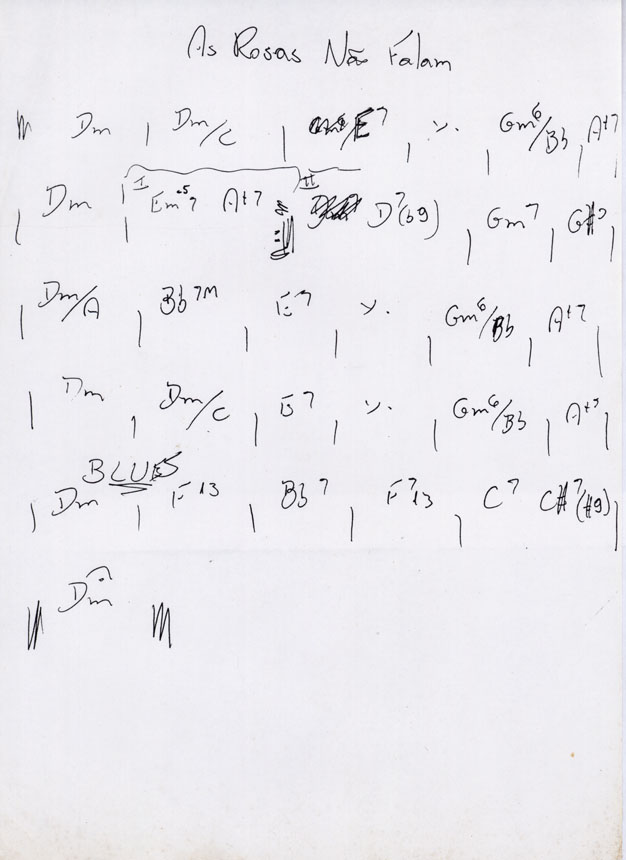 As Rosas Não Falam
Dm | Dm/C | E7 | ٪ | Gm6/Bb | A+7
I II
| Dm | Em-57 A+7 :|| D7(b9) | Gm7 | G#º |
| Dm/A | Bb7M | E7 | ٪ | Gm6/Bb | A+7 |
| Dm | Dm/C | E7 | ٪ | Gm6/Bb | A+7 |
BLUES
| Dm | F13 | Bb7 | F713 | C7 C#7(#9) |
|| Dm ||